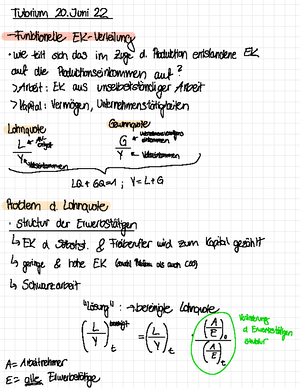 Tutorium 20. Juni 22
→ Funktionelle EK-Verteilung
• wie teilt sich das im Zuge d. Produktion entstandene EK
auf die Produktionseinkommen auf?
> Arbeit: EK aus unselbstständiger Arbeit
> Kapital: Vermögen, Unternehmenstätigkeiten
Lohnquote Gewinnquote
L G
Y Y
LQ + GQ = 1 ; Y = L + G
Problem d. Lohnquote
• Struktur der Erwerbstätigen
↳ EK d. Selbstst. & Freiberufler wird zum Kapital gezählt
↳ geringe & hohe EK
↳ Schwarzarbeit
"Lösung" : → bereinigte Lohnquote
(L/Y) bereinigt t = (L/Y) t · (A/E) 0 / (A/E) t
Veränderung
d Erwerbstätigen
struktur
A = Arbeitnehmer
E = alle Erwerbstätige